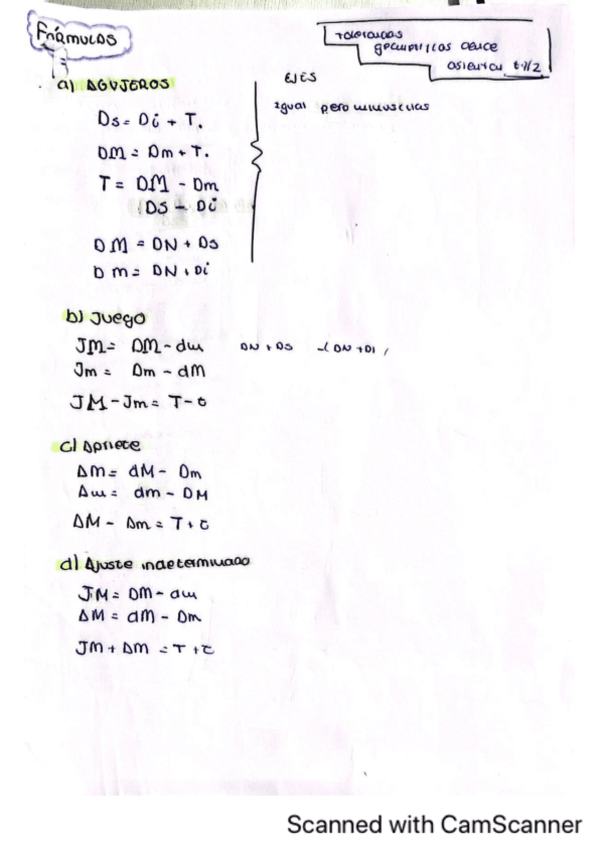 Fórmulas
Tolerancias
geométricas
t1/2
a) AGUJEROS
EJES
igual pero minúsculas
Ds = Di + T.
DM = Dm + T.
T = DM - Dm
DS - Di
DM = DN + Ds
Dm = DN + Di
b) Juego
JM = DM - dm DN + DS -( DN + DI ,
Jm = Dm - dM
JM - Jm = T - t
c) Apriete
AM = dM - Dm
Am = dm - DM
AM - Am = T + t
d) Ajuste indeterminado
JM = DM - dm
AM = dM - Dm
JM + AM = T + t
Scanned with CamScanner